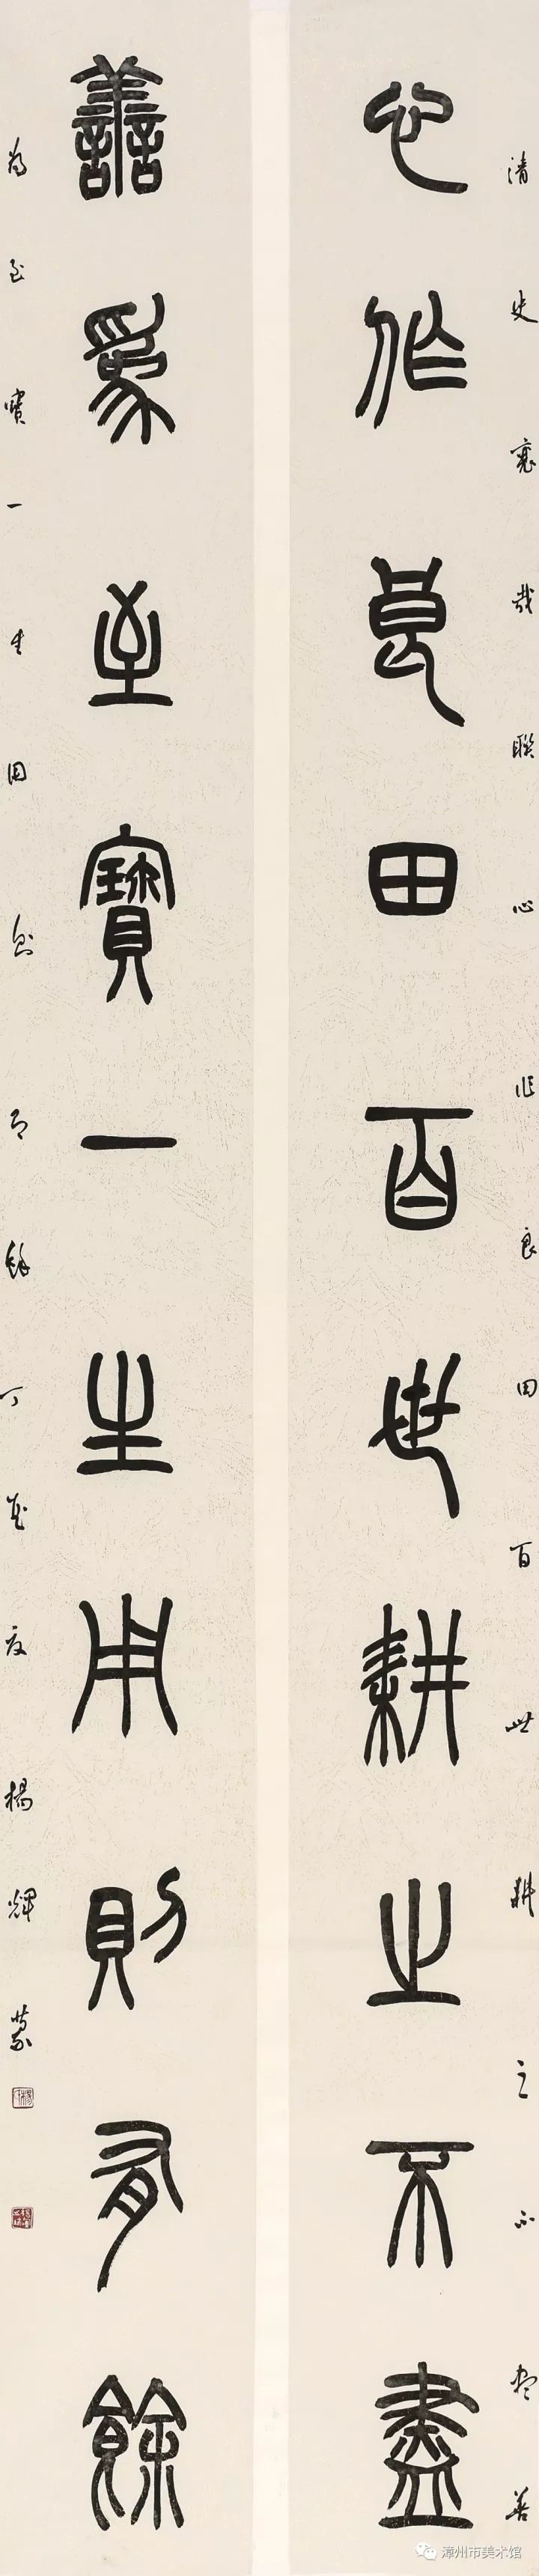 清史襄哉聯心作良田百世耕之不盡善
心作良田百世耕之不盡
善為至寶一生用則有餘
為至寶一生用則有餘丁亥夏楊輝篆
漳州市美术馆